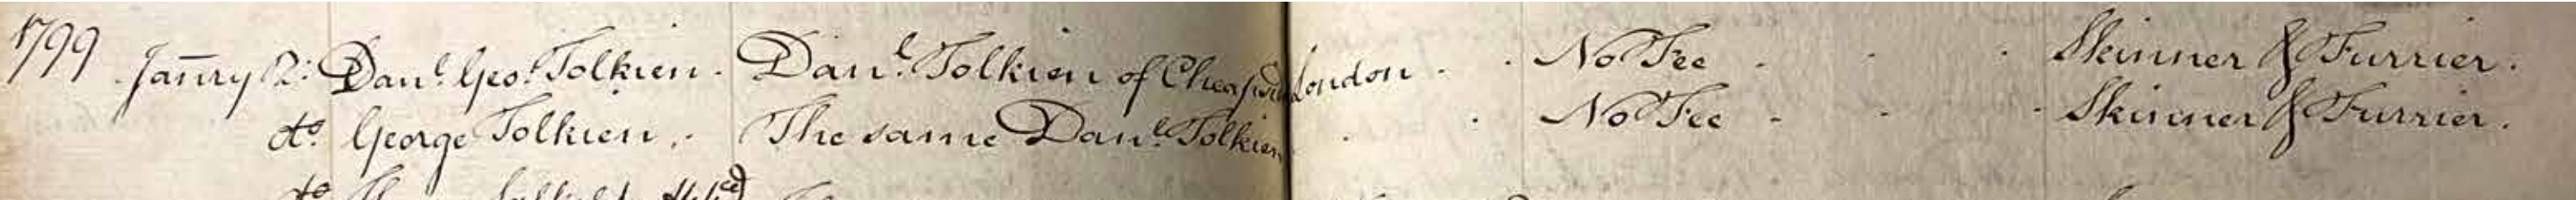 1799
Janry 2: Danl. Geo: Tolkien. Danl. Tolkien of Cheapside London . . No Fee . . . Skinner & Furrier.
do. George Tolkien. . The same Danl. Tolkien . . No Fee . . . Skinner & Furrier.
do